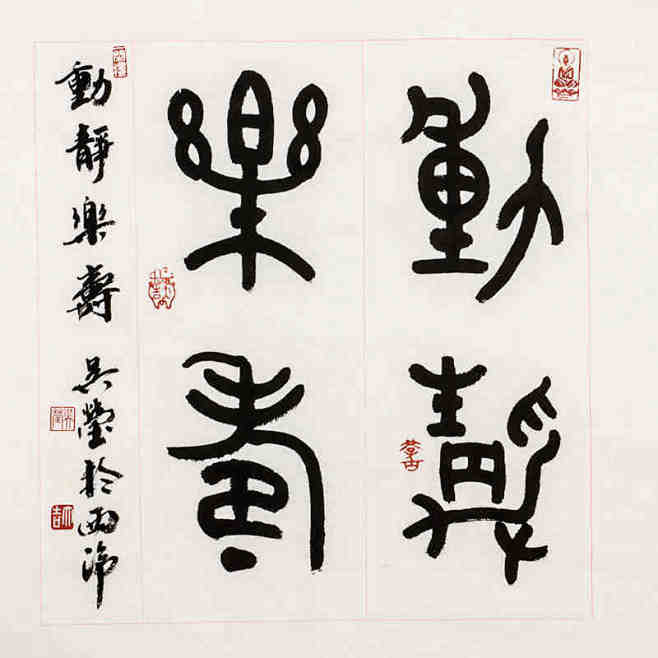 動靜
樂壽
動靜樂壽 吳瑩於